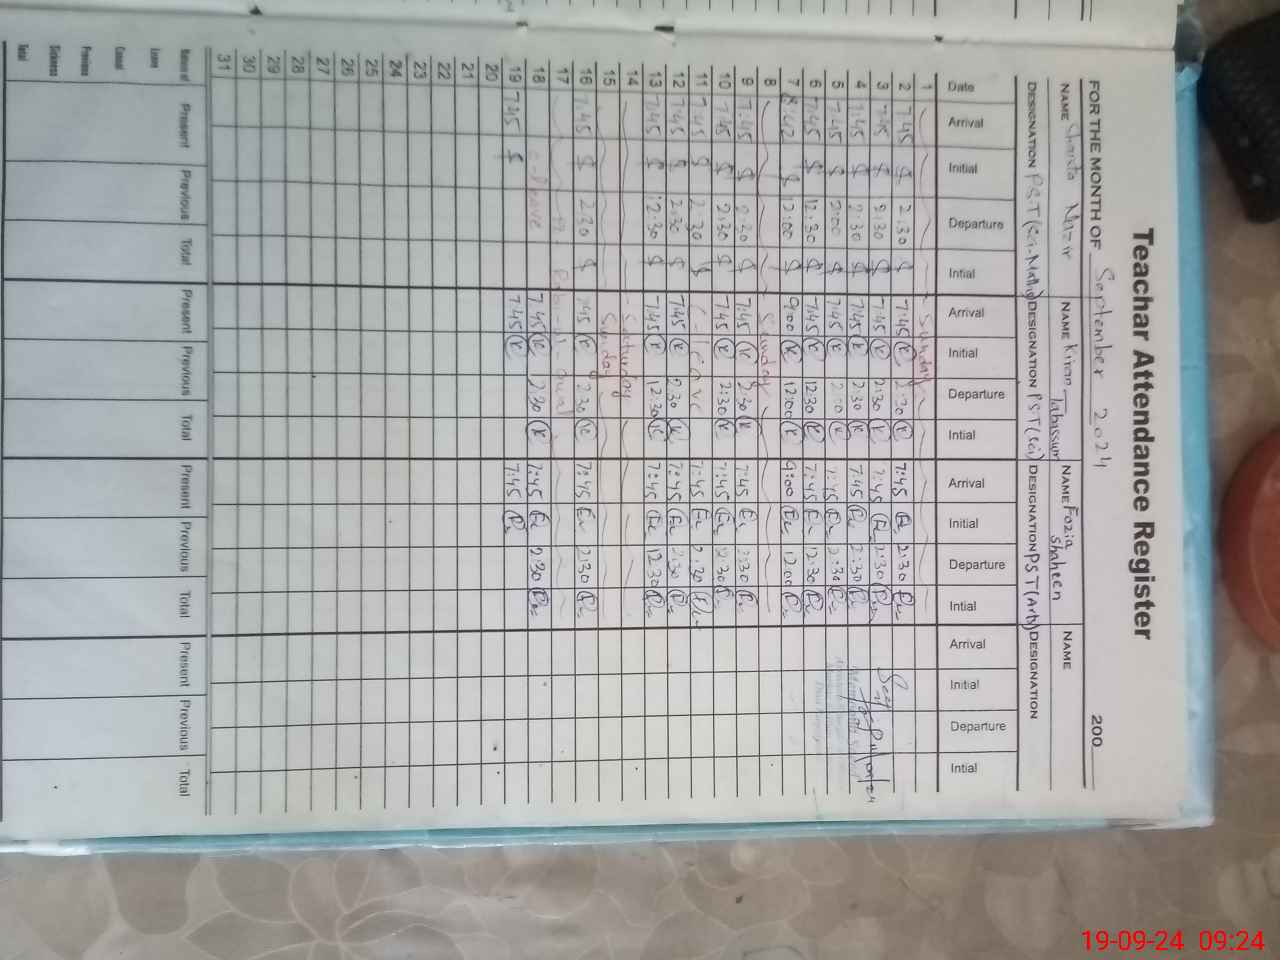 Teachar Attendance Register
FOR THE MONTH OF September 2024 200
NAME Nazir NAME Kiran Tabassum NAME Fozia Shaheen NAME
DESIGNATION PST (Sci-Math) DESIGNATION PST (Sci) DESIGNATION PST (Arts) DESIGNATION
Date Arrival Initial Departure Intial Arrival Initial Departure Intial Arrival Initial Departure Intial Arrival Initial Departure Intial
1 Sunday
2 7:45 2:30 7:45 K 2:30 K 7:45 2:30
3 7:45 2:30 7:45 K 2:30 K 7:45 2:30
4 7:45 2:30 7:45 K 2:30 K 7:45 2:30
5 7:45 2:00 7:45 K K 7:45 2:30
6 7:45 12:30 7:45 K 12:30 K 7:45 12:30
7 12:00 9:00 K 12:00 K 9:00 12:00
8 Sunday
9 7:45 2:30 7:45 K 2:30 K 7:45 2:30
10 7:45 2:30 7:45 K 2:30 K 7:45 2:30
11 7:45 2:30 C-leave 7:45 2:30
12 7:45 2:30 7:45 K 2:30 K 7:45 2:30
13 7:45 12:30 7:45 K 12:30 K 7:45 12:30
14 Saturday
15 Sunday
16 7:45 2:30 7:45 K 2:30 K 7:45 2:30
17
18 7:45 K 2:30 K 7:45 2:30
19 7:45 7:45 K 7:45
20
21
22
23
24
25
26
27
28
29
30
31
Nature of Present Previous Total Present Previous Total Present Previous Total Present Previous Total
Leave
Casual
Previous
Sickness
Total
19-09-24 09:24